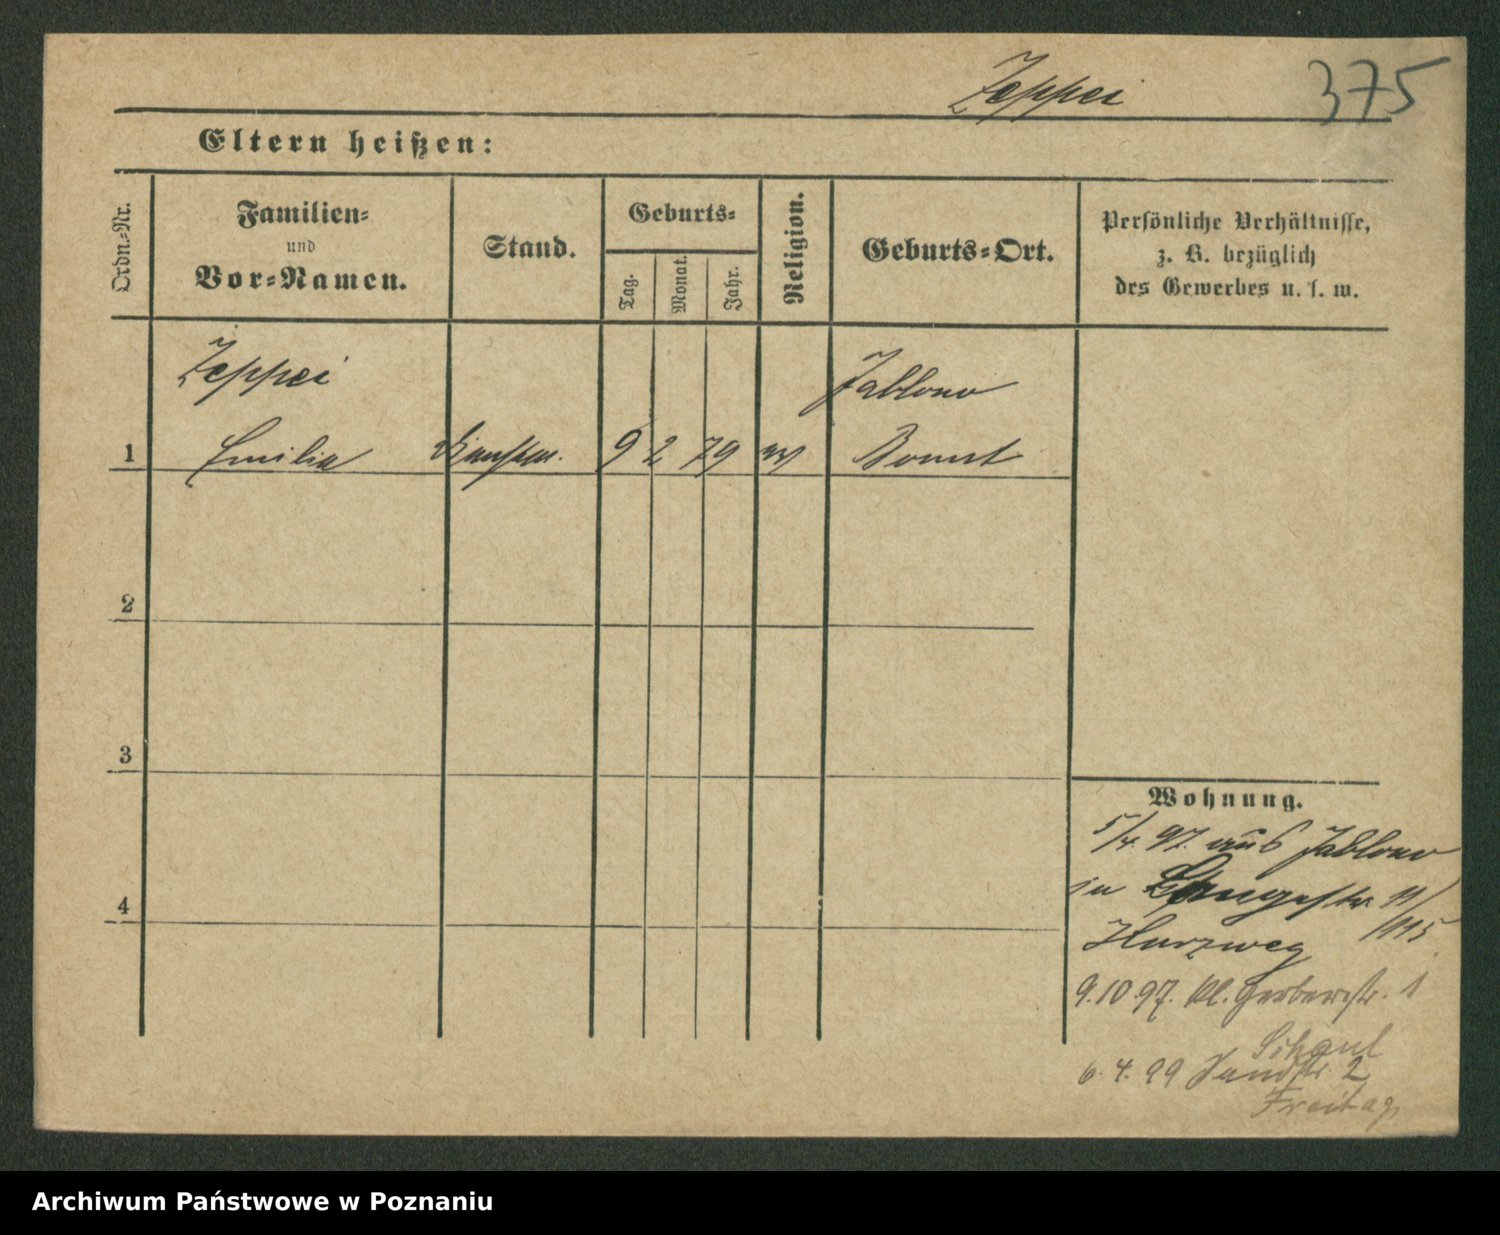 Zeppei
375
Eltern heißen:
Ordn.-Nr.
Familien-
und
Vor-Namen.
Stand.
Geburts-
Tag.
Monat.
Jahr.
Religion.
Geburts-Ort.
Persönliche Verhältnisse,
z. B. bezüglich
des Gewerbes u. s. w.
Zeppei
Jablono
1 Emilia 9 2 79 Bomst
2
3
4
Wohnung.
5/4. 97. aus Jablono
in Langestr. 11/
115
9.10.97. Kl. Gerberstr. 1
6. 4. 99 Sandstr. 2
Freitag
Archiwum Państwowe w Poznaniu